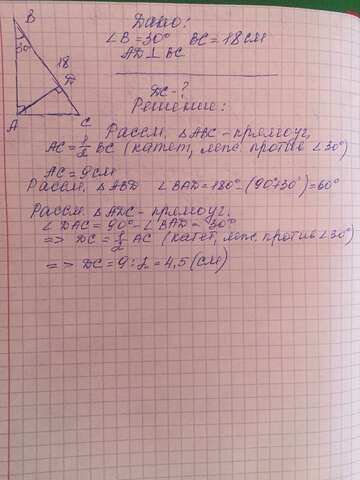 B
30°
18
D
A
C
Дано:
∠B = 30° BC = 18 см
AD ⊥ BC
DC - ?
Решение:
Рассм. △ABC - прямоуг.
AC = 1/2 BC (катет, леж. против ∠30°)
AC = 9 см
Рассм. △ABD ∠BAD = 180° - (90°+30°) = 60°
Рассм. △ADC - прямоуг.
∠DAC = 90° - ∠BAD = 30°
=> DC = 1/2 AC (катет, леж. против ∠30°)
=> DC = 9 : 2 = 4,5 (см)